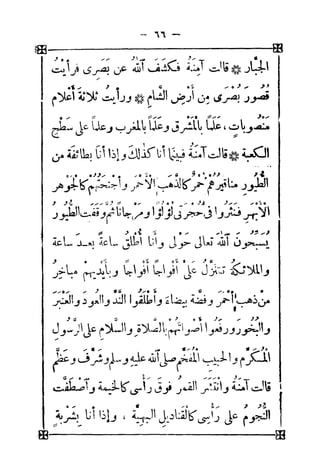 — ٦٦ —
الجبار * قالت آمنة فكشف الله عن بصرى فرأيت
قصور بصرى من أرض الشام * ورأيت ثلاثة أعلام
منصوبات ، علما بالمشرق وعلما بالمغرب وعلما على سطح
الكعبة * قالت آمنة فبينا أنا كذلك وإذا أنا بطائفة من
الطيور مناقيرهم حمر كالذهب الأحمر وأجنحتهم كالجوهر
الأبهر فنثروا فى حجرتى لؤلؤا ومرجانا ثم وقفت الطيور
يسبحون الله تعالى حولى وأنا أطلق ساعة بعد ساعة
والملائكة تتنزل على أفواجا أفواجا وبأيديهم مباخر
من ذهب أحمر وفضة بيضاء وأطلقوا الند والعود والعنبر
والبخور ورفعوا أصواتهم بالصلاة والسلام على الرسول
المكرم والحبيب المفخم صلى الله عليه وسلم وشرف وعظم
قالت آمنة وانتشر القمر فوق رأسى كالخيمة وآصطفت
النجوم على رأسى كالقناديل البهية ، وإذا أنا بشربة